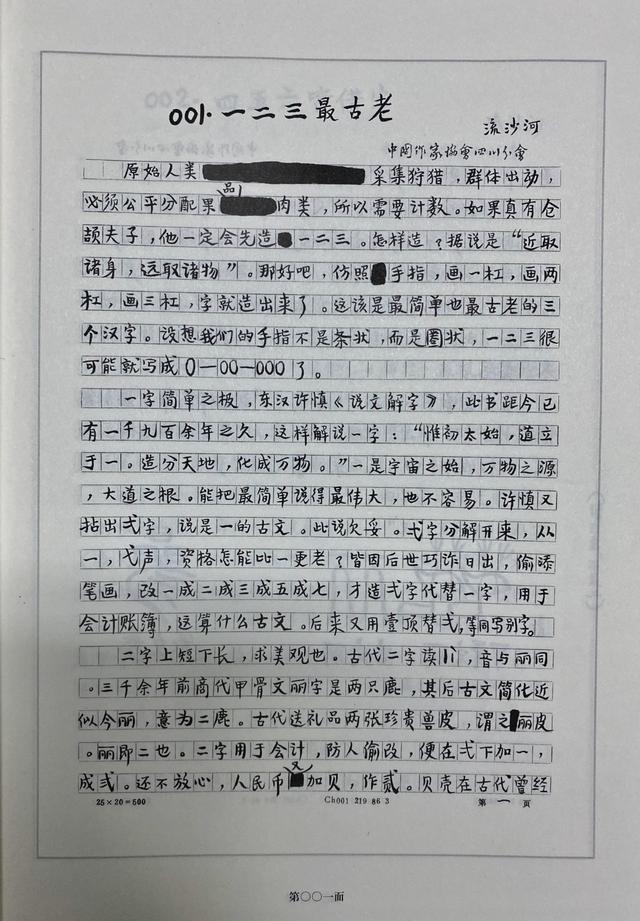 001.一二三最古老
流沙河
中国作家协会四川分会
原始人类采集狩猎，群体出动，
必须公平分配果品肉类，所以需要计数。如果真有仓
颉夫子，他一定会先造一二三。怎样造？据说是“近取
诸身，远取诸物”。那好吧，仿照手指，画一杠，画两
杠，画三杠，字就造出来了。这该是最简单也最古老的三
个汉字。设想我们的手指不是条状，而是圈状，一二三很
可能就写成0—00—000了。
一字简单之极，东汉许慎《说文解字》，此书距今已
有一千九百余年之久，这样解说一字：“惟初太始，道立
于一。造分天地，化成万物。”一是宇宙之始，万物之源
，大道之根。能把最简单说得最伟大，也不容易。许慎又
拈出弌字，说是一的古文。此说欠妥。弌字分解开来，从
一，弋声，资格怎能比一更老？皆因后世巧诈日出，偷添
笔画，改一成二成三成五成七，才造弌字代替一字，用于
会计账簿，这算什么古文。后来又用壹顶替弌，等同写别字。
二字上短下长，求美观也。古代二字读儿，音与丽同
。三千余年前商代甲骨文丽字是两只鹿，其后古文简化近
似今丽，意为二鹿。古代送礼品两张珍贵兽皮，谓之丽皮
。丽即二也。二字用于会计，防人偷改，便在弌下加一，
成弍。还不放心，人民币又加贝，作贰。贝壳在古代曾经
25×20=500
Ch001 219 86 3
第一页
第〇〇一面